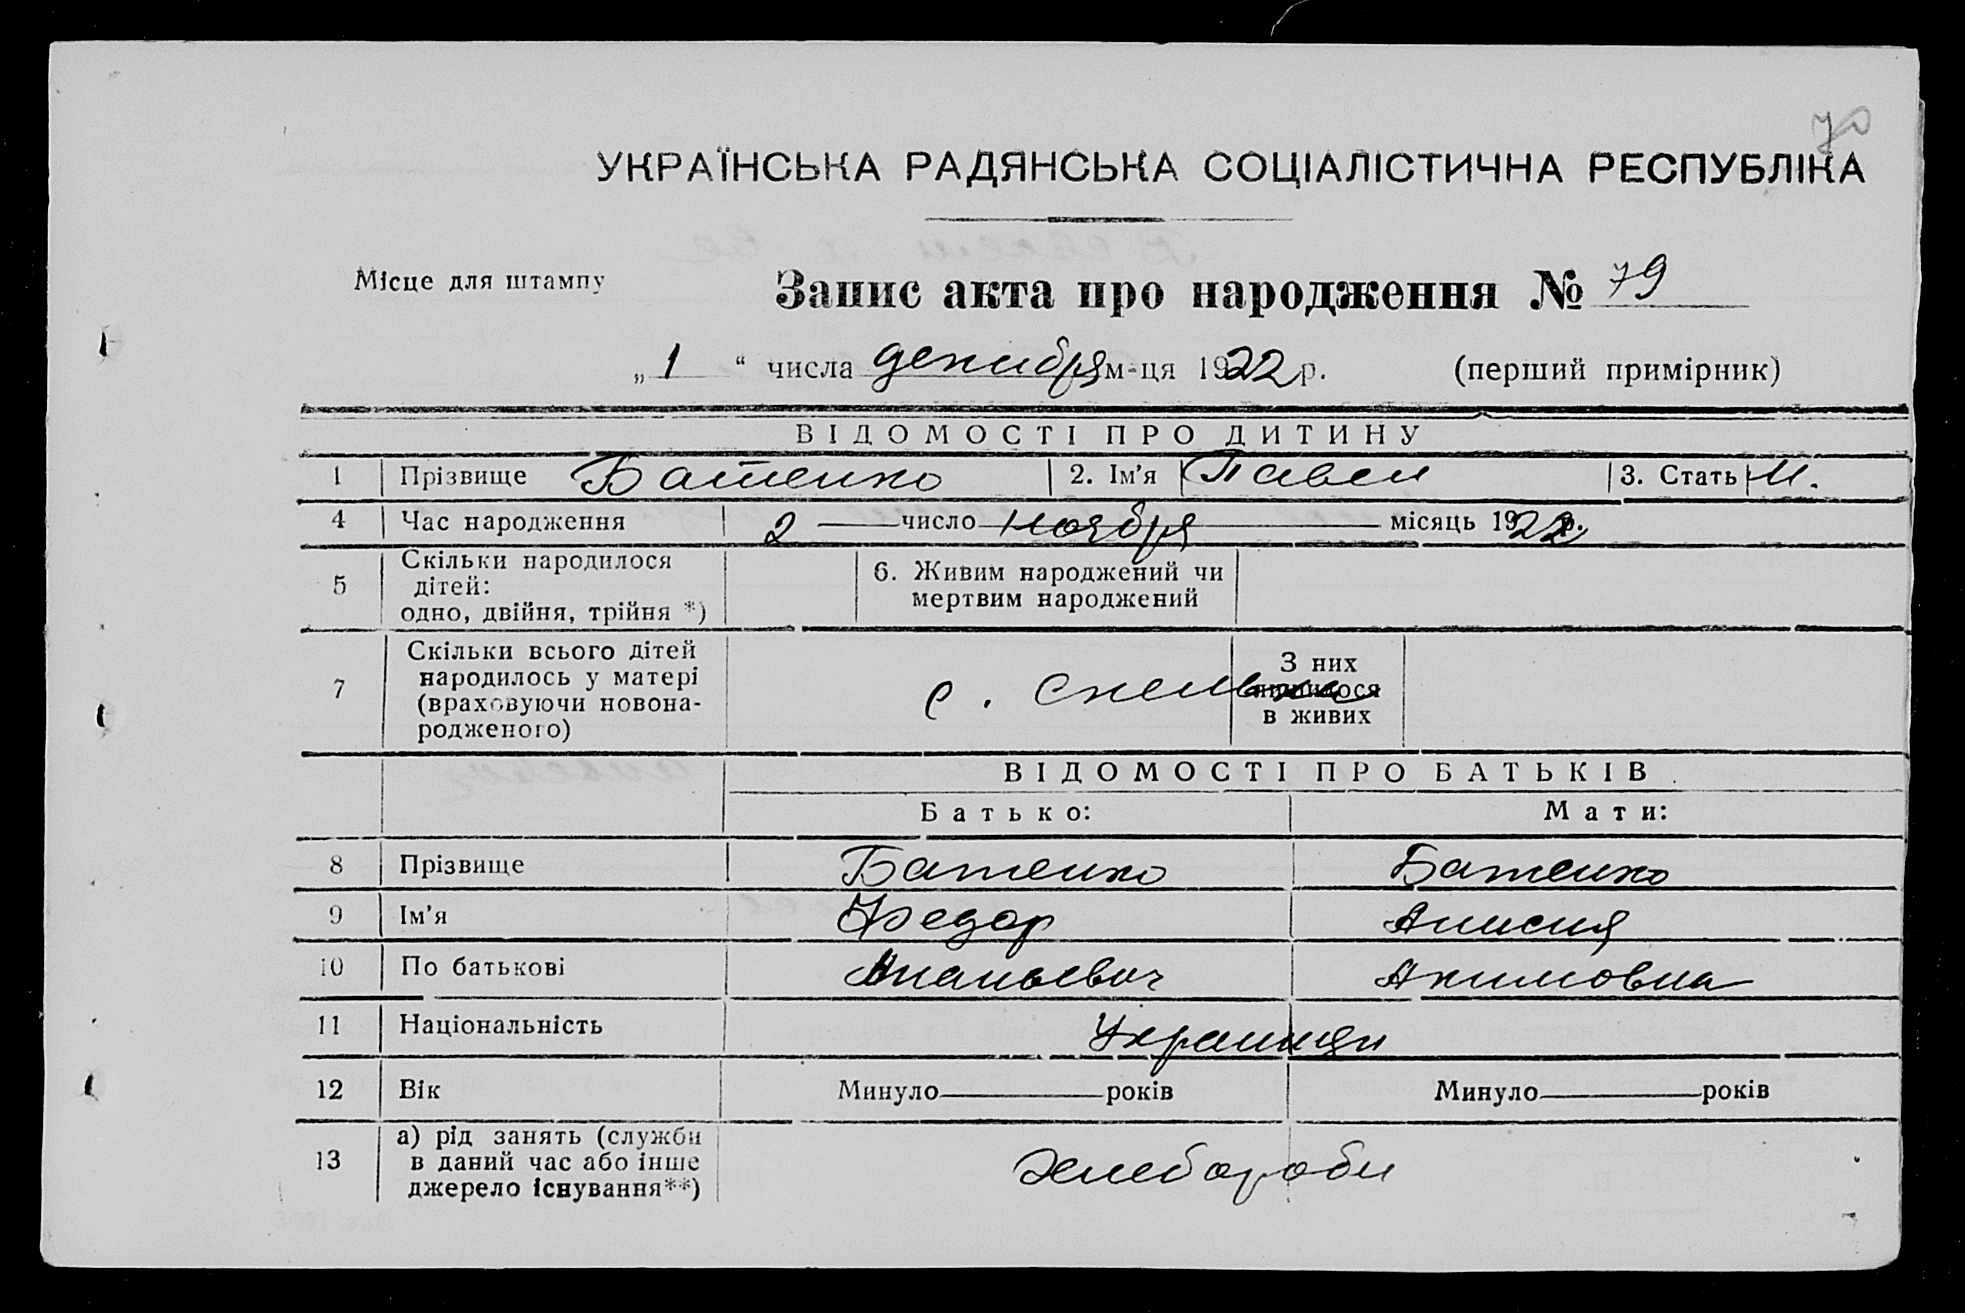 70
УКРАЇНСЬКА РАДЯНСЬКА СОЦІАЛІСТИЧНА РЕСПУБЛІКА
Місце для штампу
Запис акта про народження № 79
„ 1 “ числа декабря м-ця 1922 р. (перший примірник)
ВІДОМОСТІ ПРО ДИТИНУ
1 Прізвище Батенко 2. Ім’я Павел 3. Стать М.
4 Час народження 2 число ноября місяць 1922 р.
5 Скільки народилося дітей: одно, двійня, трійня *) 6. Живим народжений чи мертвим народжений
7 Скільки всього дітей народилось у матері (враховуючи новона-родженого) с. Скельки З них лишилося в живих
ВІДОМОСТІ ПРО БАТЬКІВ
Батько: Мати:
8 Прізвище Батенко Батенко
9 Ім’я Федор Анисия
10 По батькові Ананьевич Акимовна
11 Національність Украинци
12 Вік Минуло років Минуло років
13 а) рід занять (служби в даний час або інше джерело існування**) Хлебороби